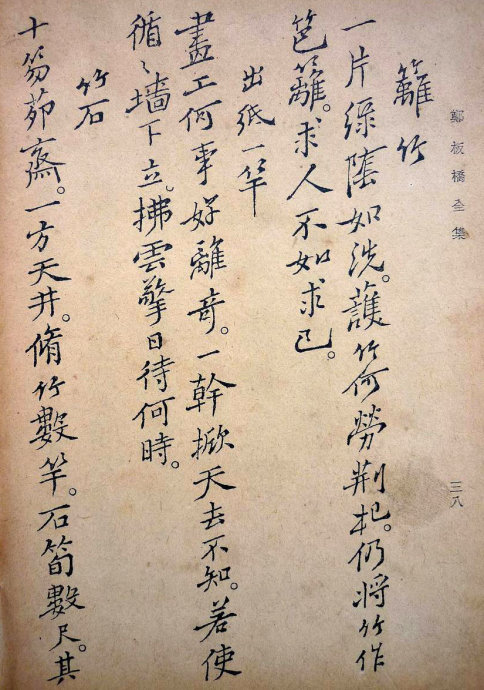 鄭板橋全集
三八
籬竹
一片綠陰如洗。護竹何勞荆杞。仍將竹作
笆籬。求人不如求己。
出紙一竿
畫工何事好離奇。一幹掀天去不知。若使
循〻墻下立。拂雲擎日待何時。
竹石
十笏茆齋。一方天井。脩竹數竿。石筍數尺。其